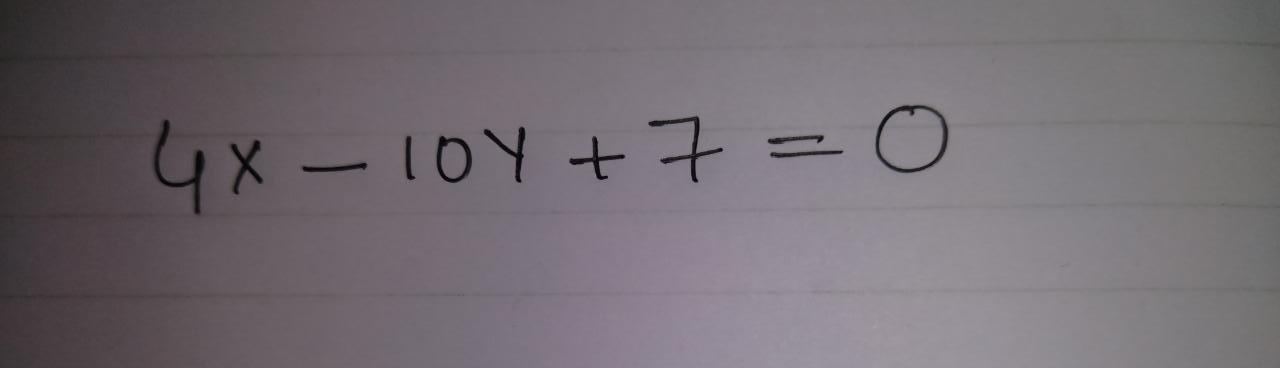 4x - 10y + 7 = 0